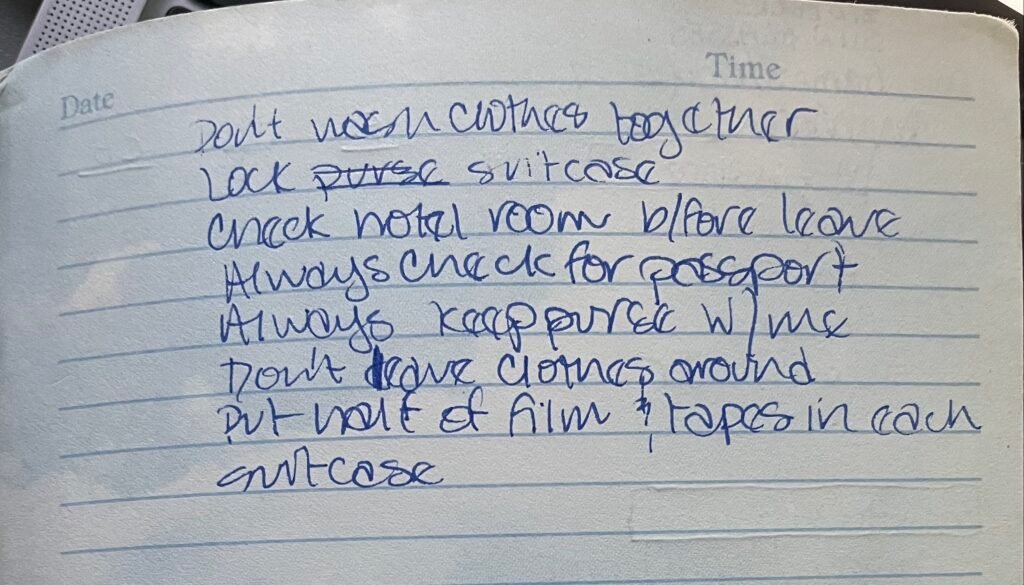 Date
Time
Don't wash clothes together
Lock purse suitcase
Check hotel room b/fore leave
Always check for passport
Always keep purse w/me
Don't leave clothes around
Put half of film & tapes in each
suitcase